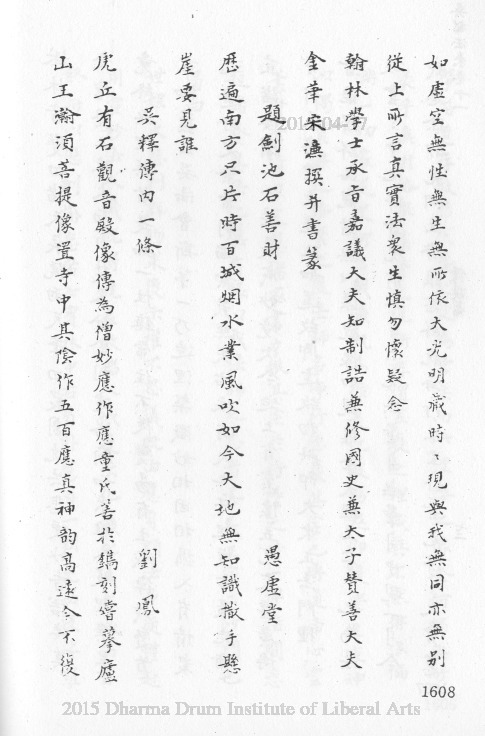 如虛空無性無生無所依大光明藏時〻現與我無同亦無別
從上所言真實法衆生慎勿懷疑念
翰林學士承旨嘉議大夫知制誥兼修國史兼太子贊善大夫
金華宋濂撰并書篆
題劍池石善財 愚虛堂
歷遍南方只片時百城烟水業風吹如今大地無知識撒手懸
崖要見誰
吳釋傳內一條 劉鳳
虎丘有石觀音殿像傳為僧妙應作應童氏善於鐫刻嘗摹廬
山王瀚須菩提像置寺中其陰作五百應真神韵高遠今不復
1608
2015 Dharma Drum Institute of Liberal Arts